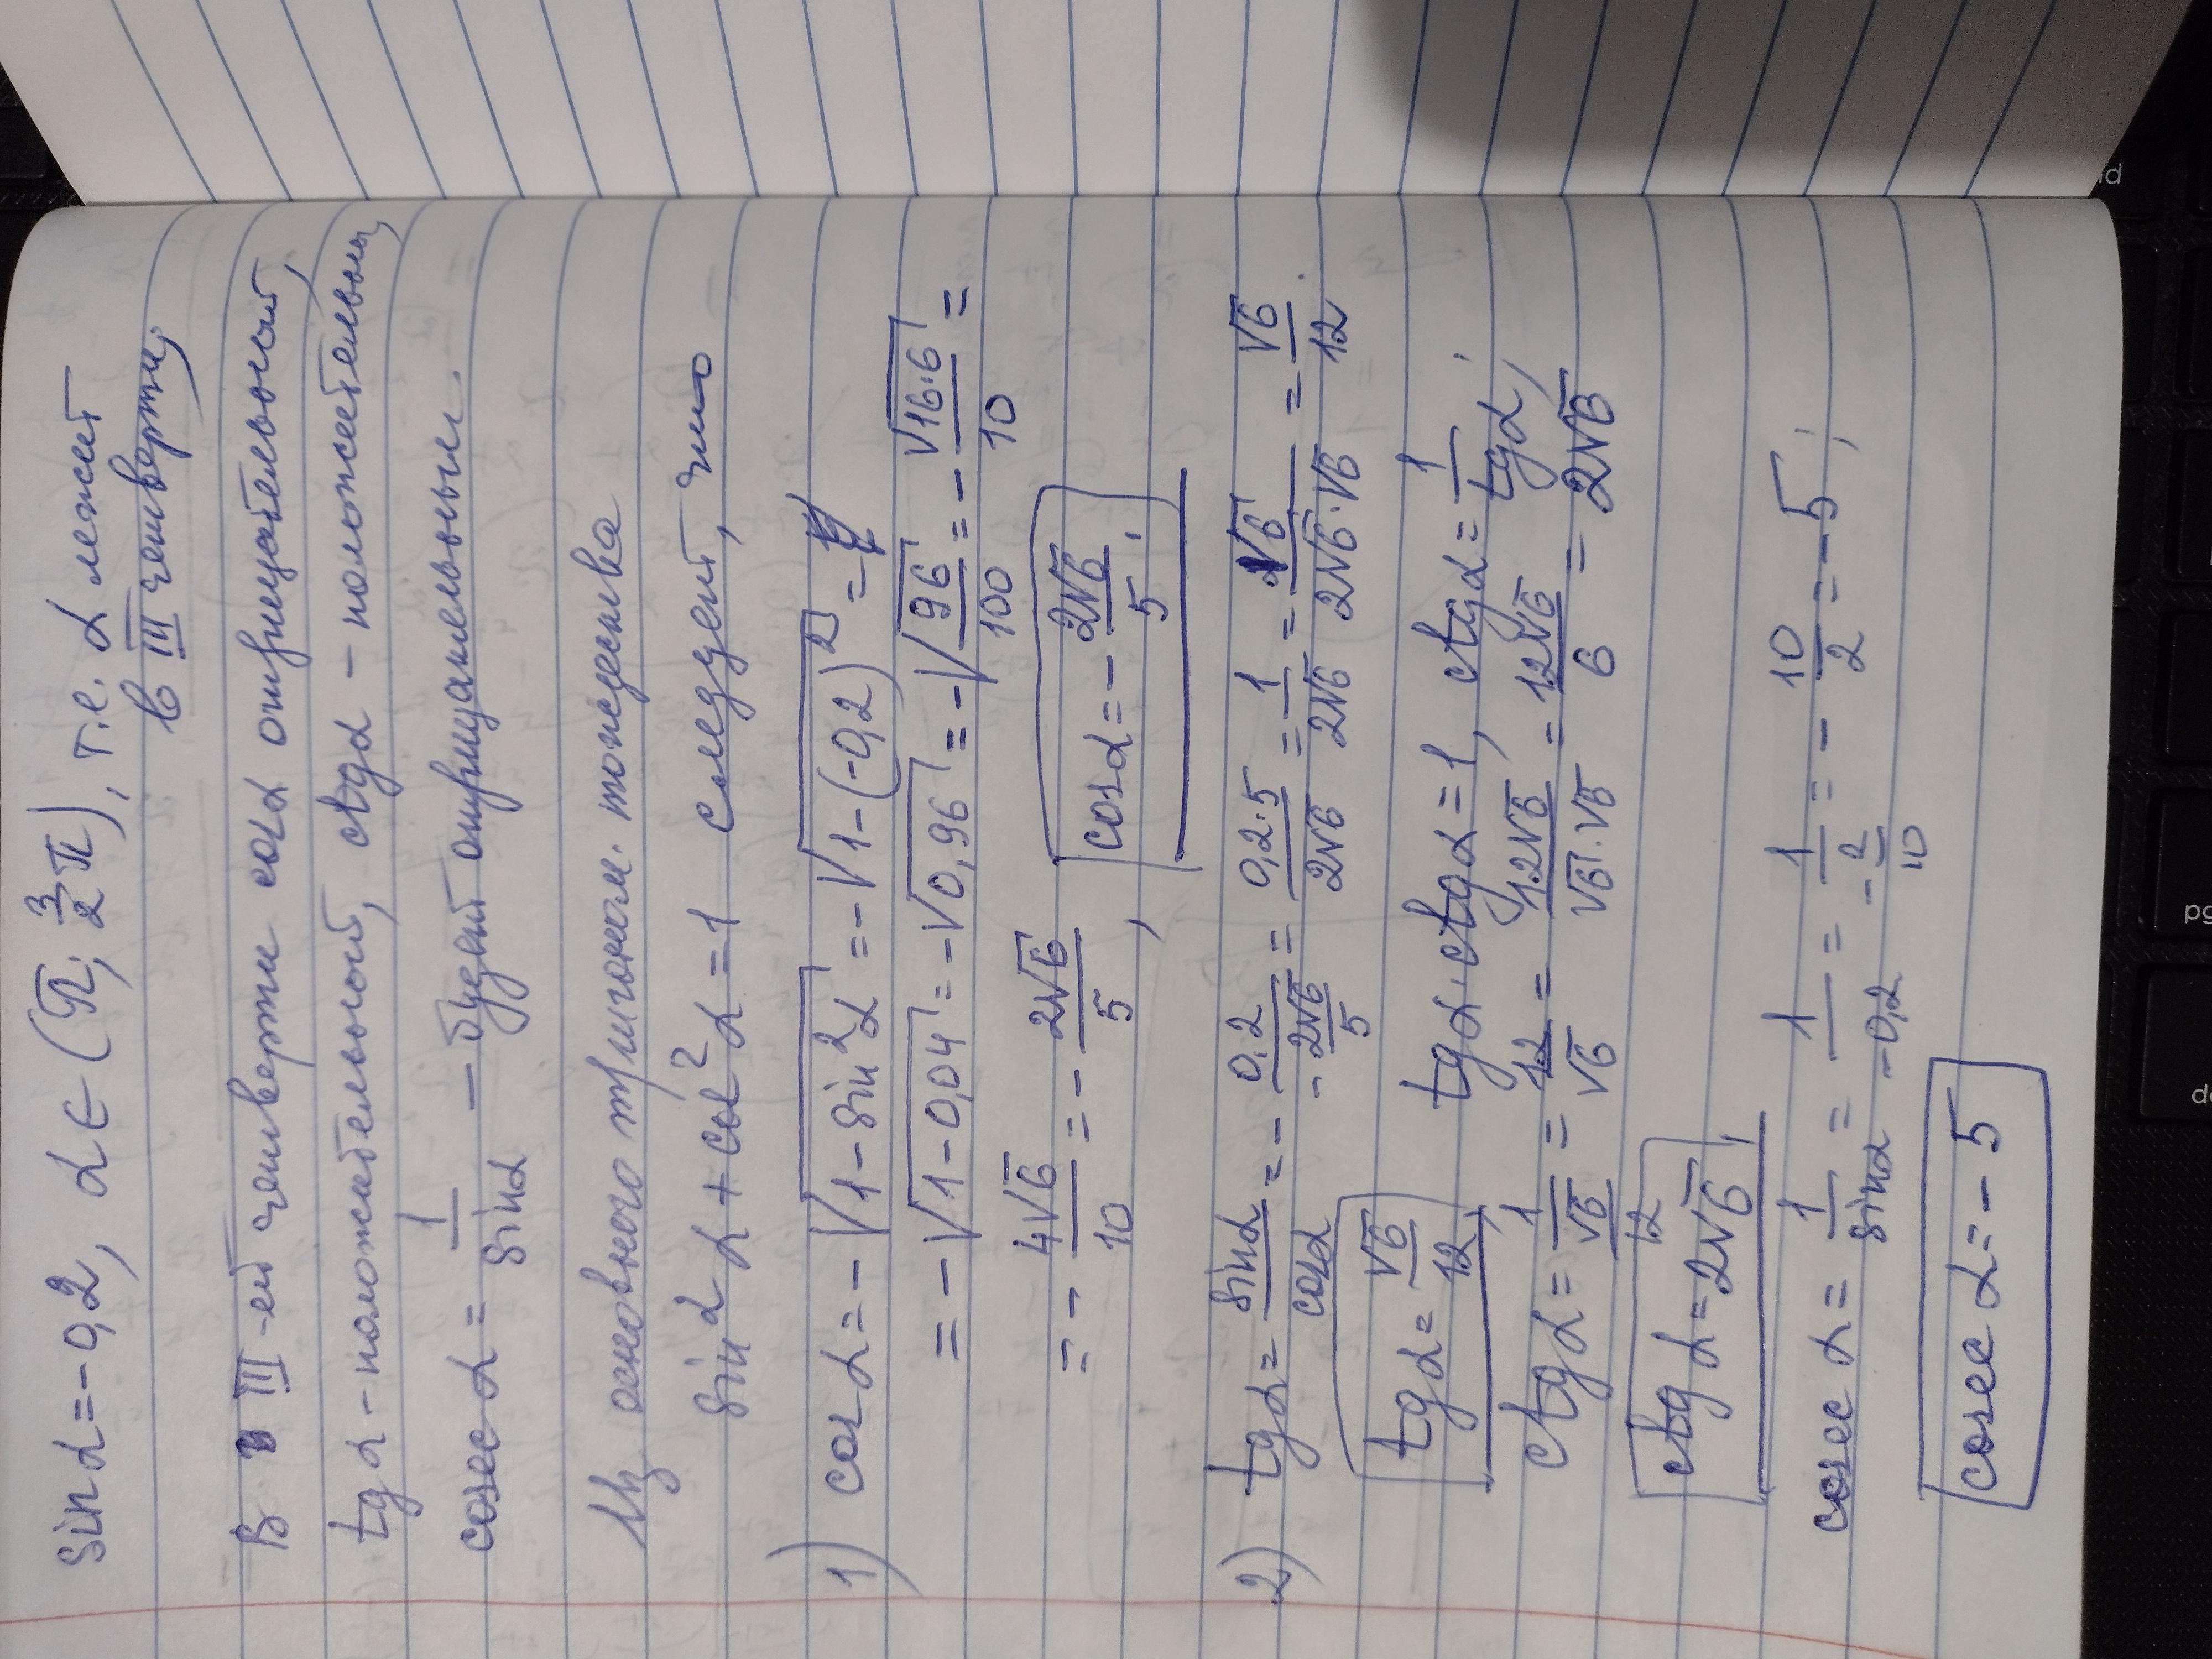 sin α = -0,2, α ∈ (π; 3/2 π), т.е. α лежит
в III четверти,
В III-ей четверти cos α отрицательный,
tg α - положительный, ctg α - положительный,
cosec α = 1/sin α - будет отрицательным.
Из основного тригоном. тождества
sin² α + cos² α = 1 следует, что
1) cos α = -√(1 - sin² α) = -√(1-(-0,2)²) =
= -√(1-0,04) = -√0,96 = -√(96/100) = -√(16·6)/10 =
= -4√6/10 = -2√6/5, cos α = -2√6/5.
2) tg α = sin α/cos α = -0,2/(-2√6/5) = 0,2·5/2√6 = 1/2√6 = √6/(2√6·√6) = √6/12.
tg α = √6/12, tg α · ctg α = 1, ctg α = 1/tg α;
ctg α = 1/(√6/12) = 12/√6 = 12√6/(√6·√6) = 12√6/6 = 2√6
ctg α = 2√6,
cosec α = 1/sin α = 1/-0,2 = 1/(-2/10) = -10/2 = -5;
cosec α = -5
pg